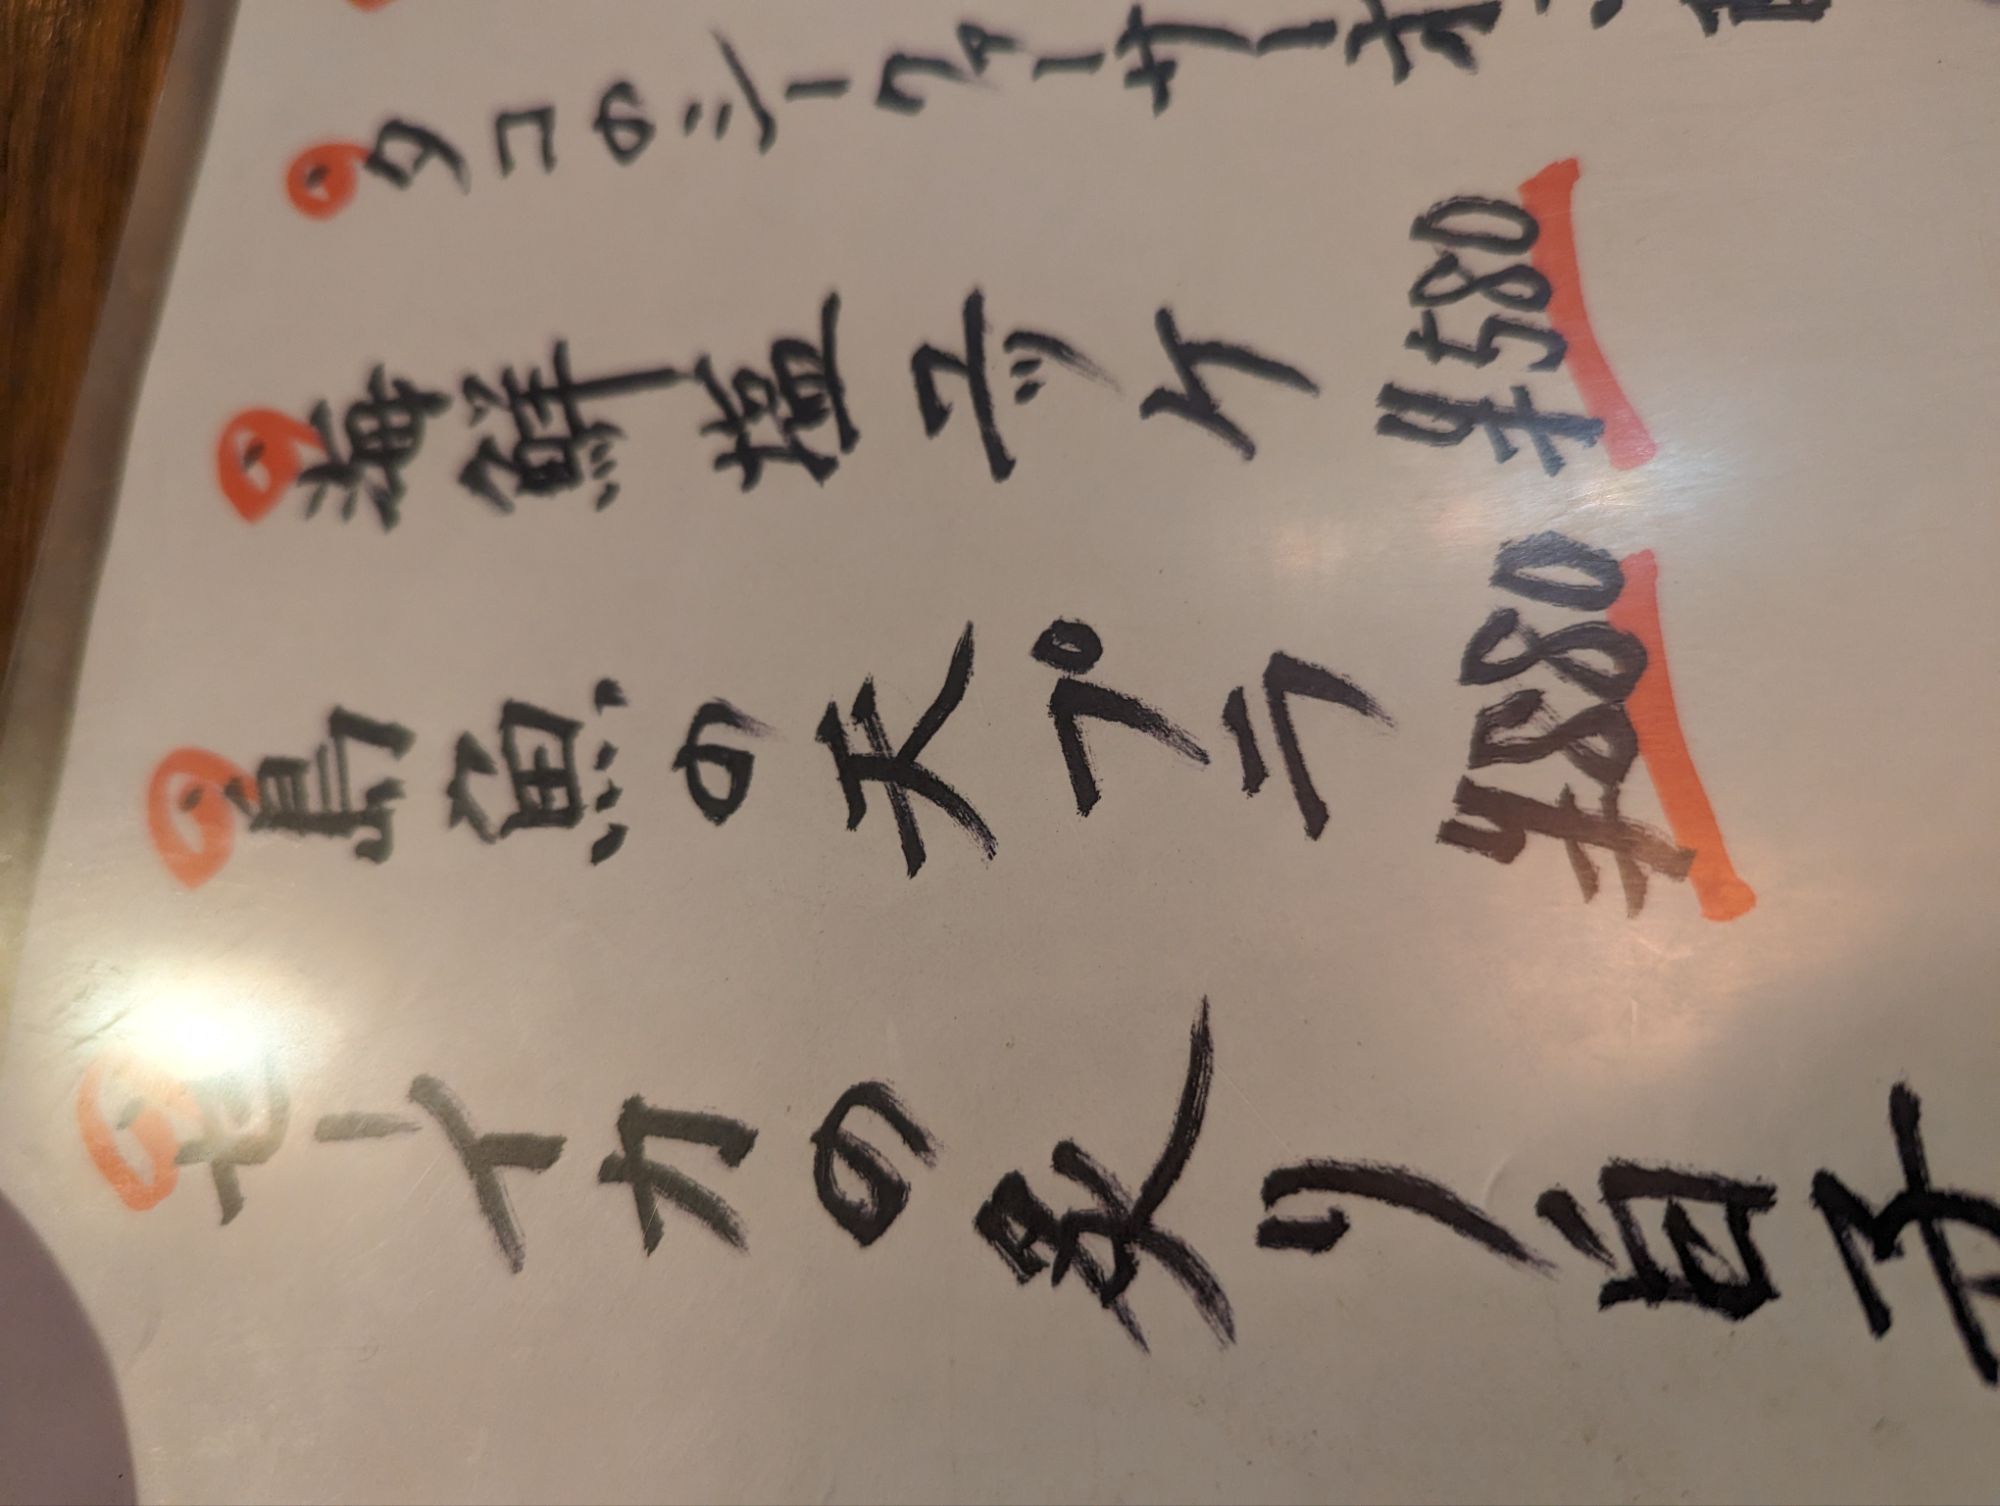 タコのシークァーサーオ
海鮮塩ユッケ ¥580
島魚の天プラ ¥880
セーイカの炙り白子